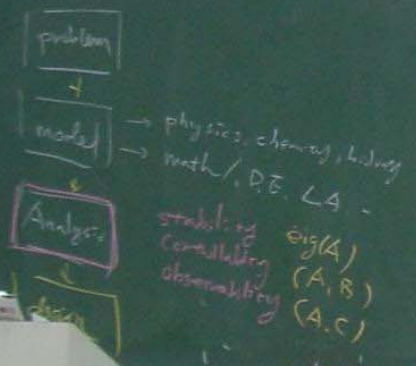 problem
model → physics, chemistry, biology
→ math, D.E. LA..
Analysis
stability eig(A)
Controllability (A,B)
observability (A,C)
design